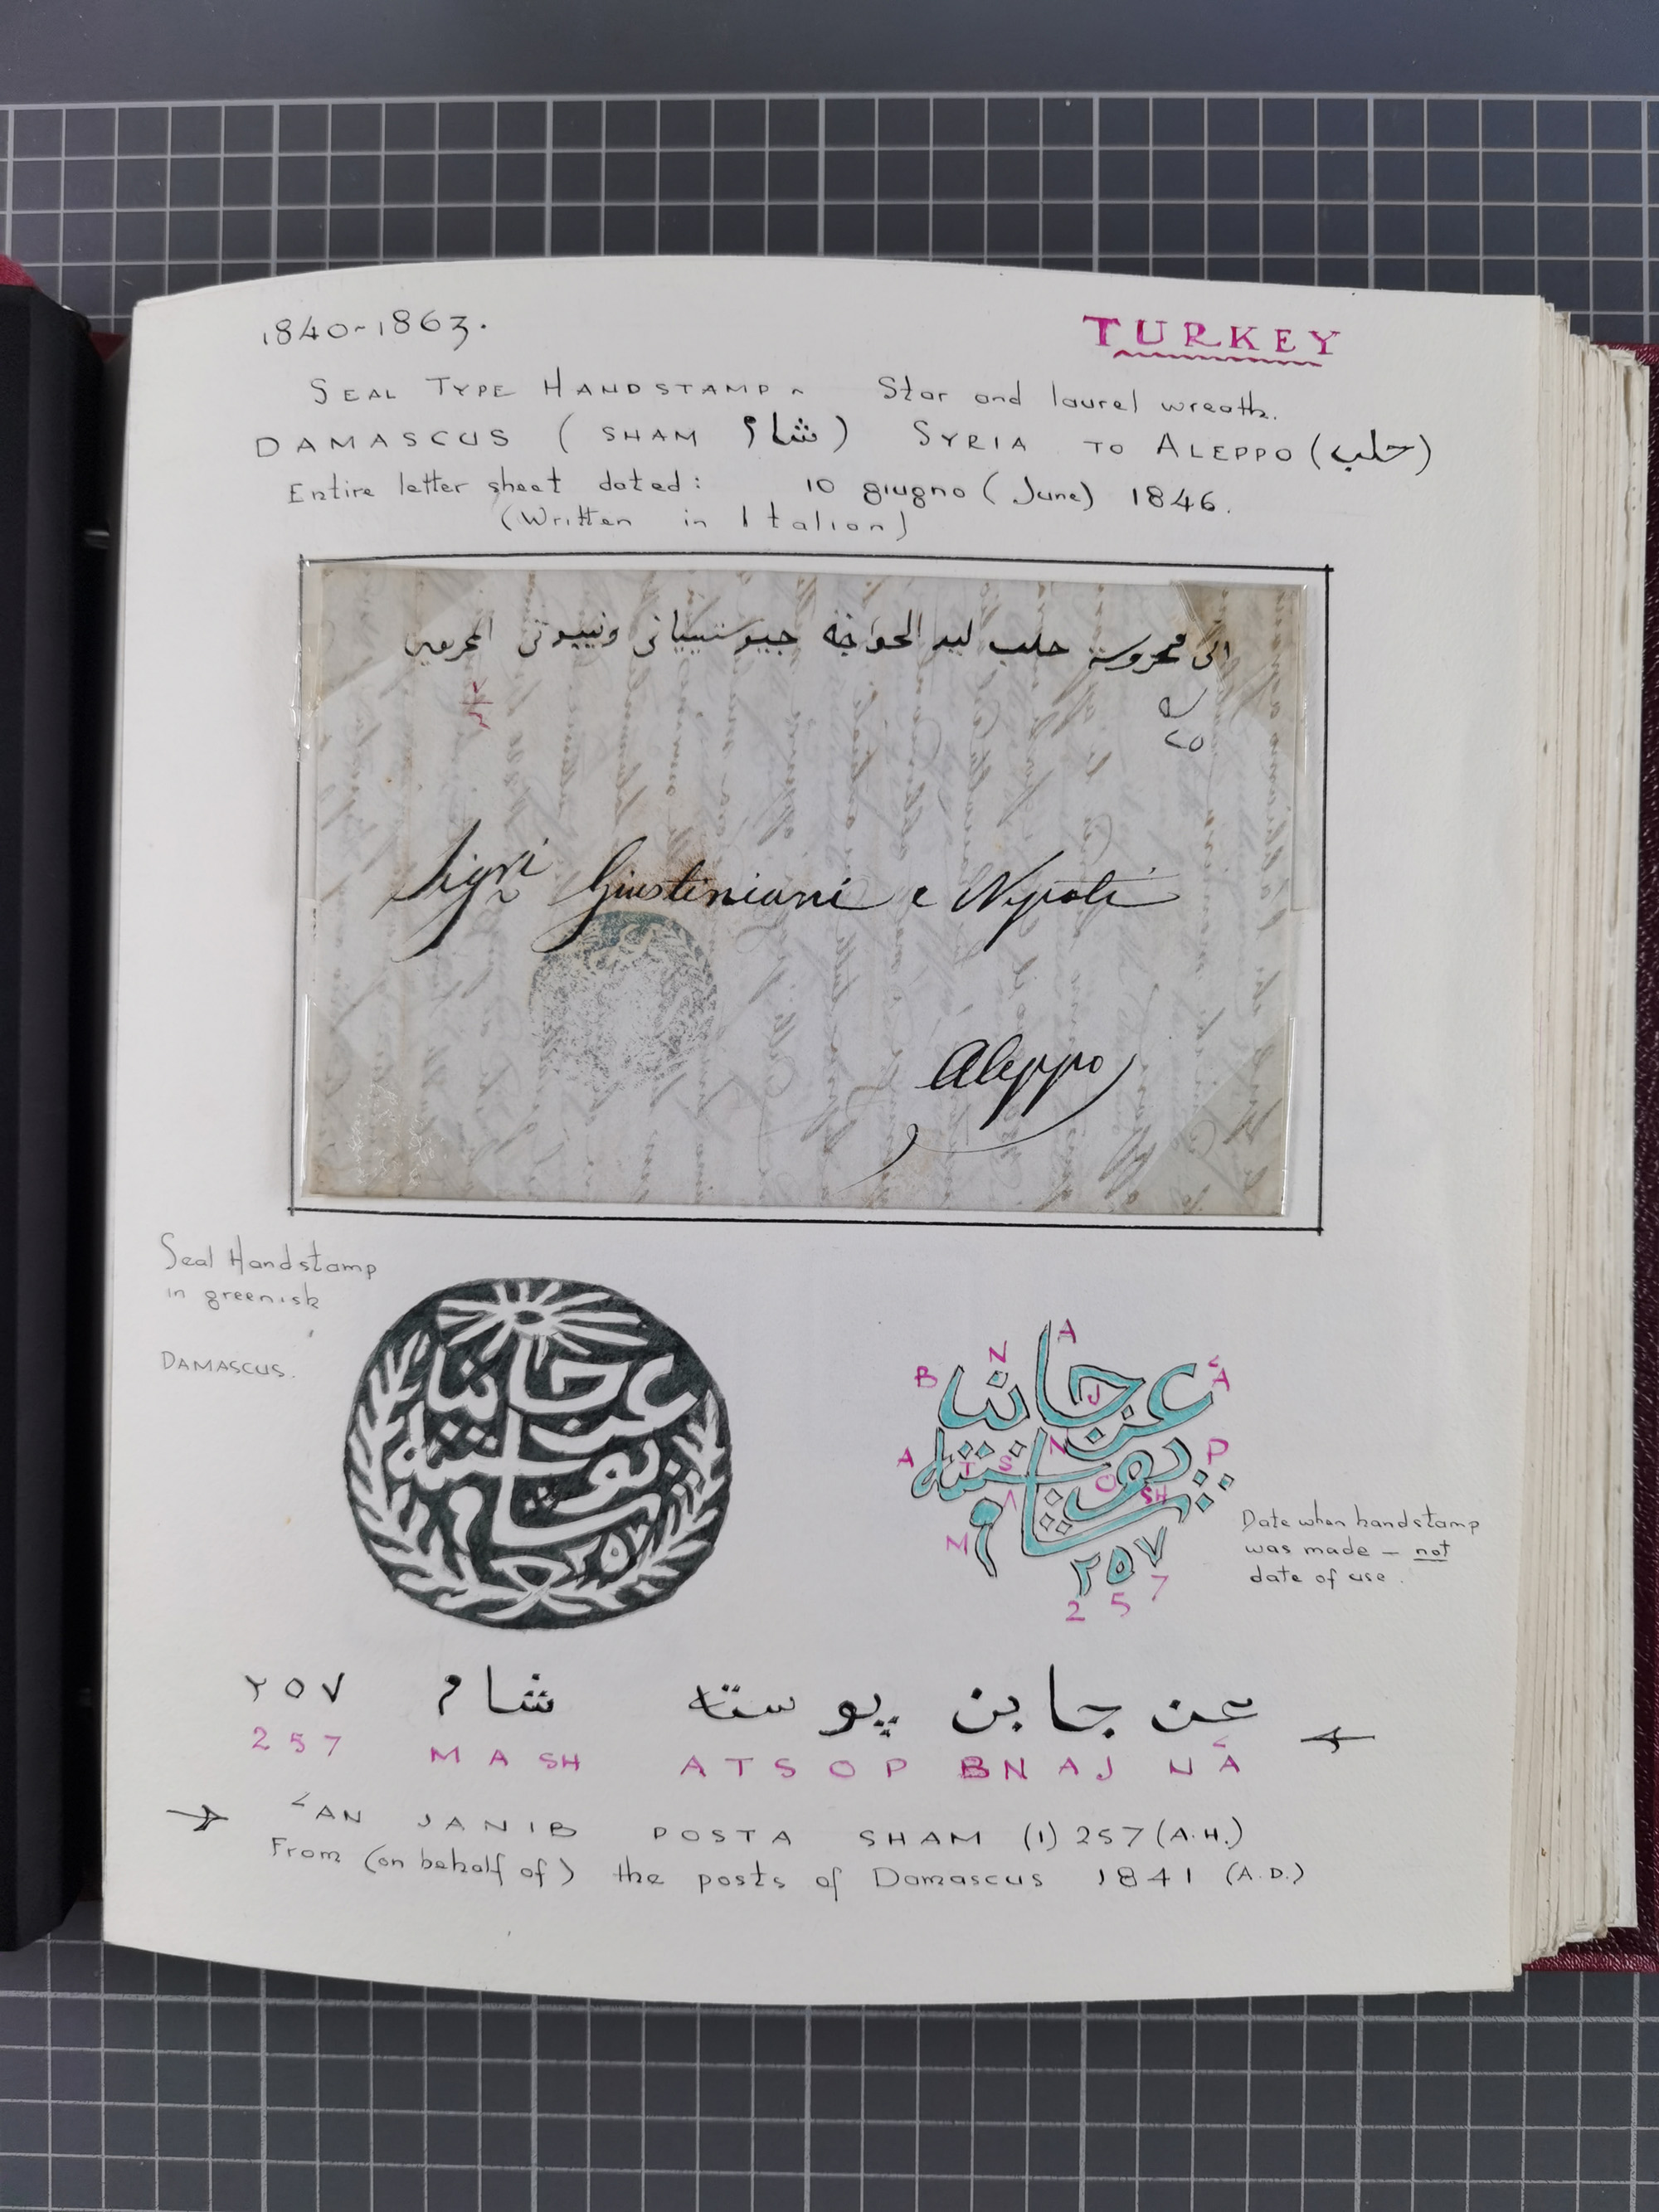 1840-1863.
TURKEY
SEAL TYPE HANDSTAMP - Star and laurel wreath.
DAMASCUS (SHAM شام) SYRIA TO ALEPPO (حلب)
Entire letter sheet dated: 10 giugno (June) 1846.
(Written in Italian)
الى محروسة حلب ليد الخواجه جيوستنياني ونيبوتي
Sigri Giustiniani e Nepoti
Aleppo
Seal Handstamp
in greenish
DAMASCUS.
عن جانب
پوسته
شام
٢٥٧
A
N
B
J
A
A
T
S
N
P
O
SH
A
M
2 5 7
Date when handstamp
was made - not
date of use.
عن جابن پوسته شام ٢٥٧
257 MASH ATSOP BNAJ NA
'AN JANIB POSTA SHAM (1)257 (A.H.)
From (on behalf of) the posts of Damascus 1841 (A.D.)